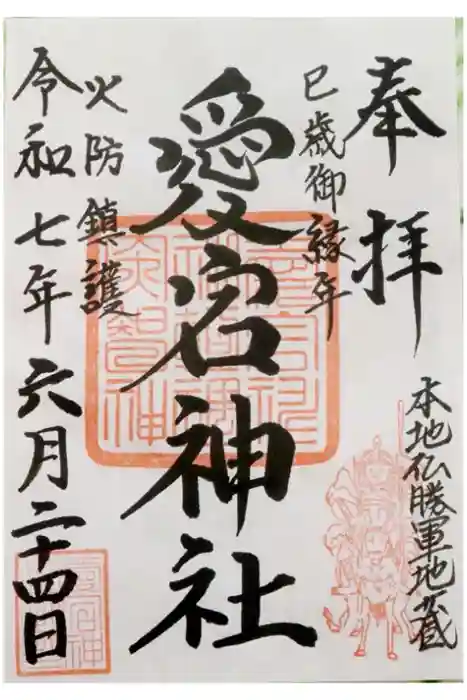 奉拝
本地仏勝軍地蔵
巳歳御縁年
愛宕神社
火防鎮護
令和七年六月二十四日